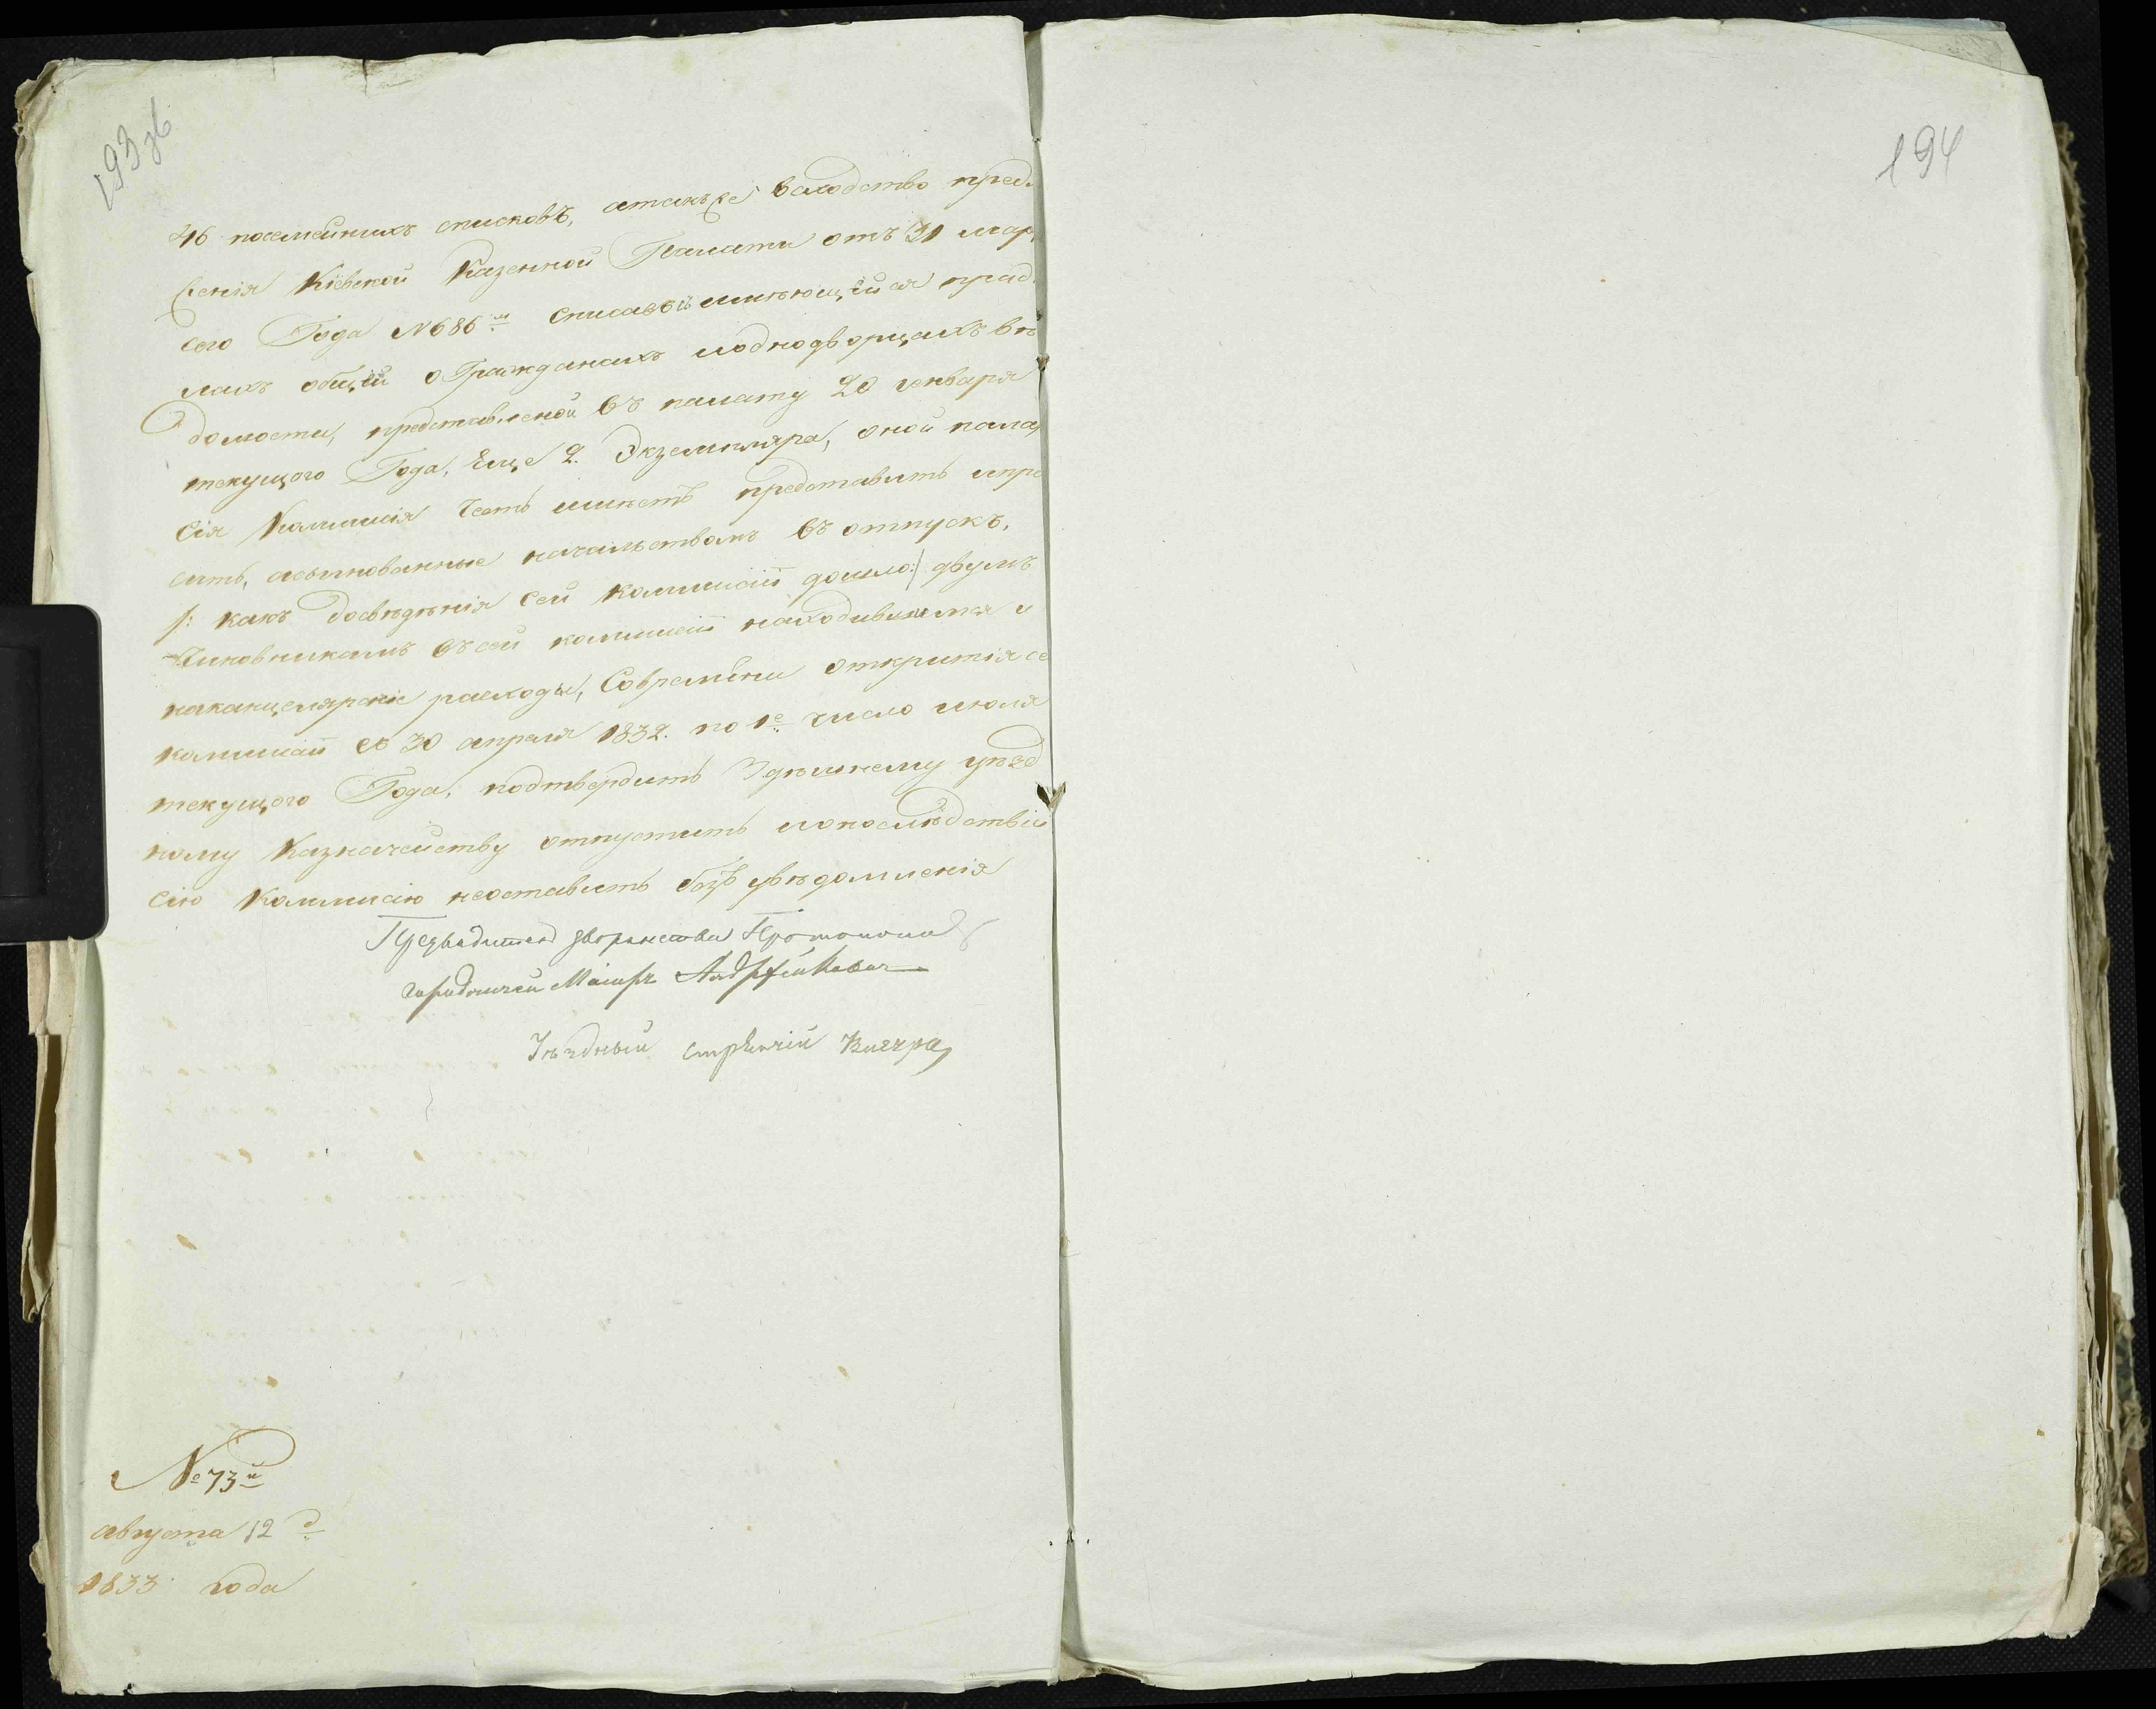 193 зв
194
46 посемейныхъ списковъ, атакъже всходство пред
женія Кіевской Казенной Палаты отъ 31 мар
сего Года №686й списавъ имѣющійся
махъ общій о Гражданахъ иоднодворцахъ вѣ
домости, представленой въ палату 20 генваря
текущого Года, Еще 2. Экземпляра, оной пала
Сія Коммисія честь имѣетъ представить ипро
сить, асыгнованные начальствомъ въ отпускъ,
/: какъ досвѣдѣнія Сей Коммисіи дошло :/ двумъ
Чиновникамъ въсей коммисіи находившимся и
наканцелярскіе расходы, Совремѣни открытія се
коммисіи съ 30 апреля 1832. по 1е число июля
текущого Года, подтвердить Здѣшнему уѣзд
ному Казначейству отпустить ипослѣдствіи
сію Коммисію неоставить безъ увѣдомленія
Предводитель дворянства
Городничий Маіоръ
Уѣздный стряпчій
№73й
августа 12 д
1833 года